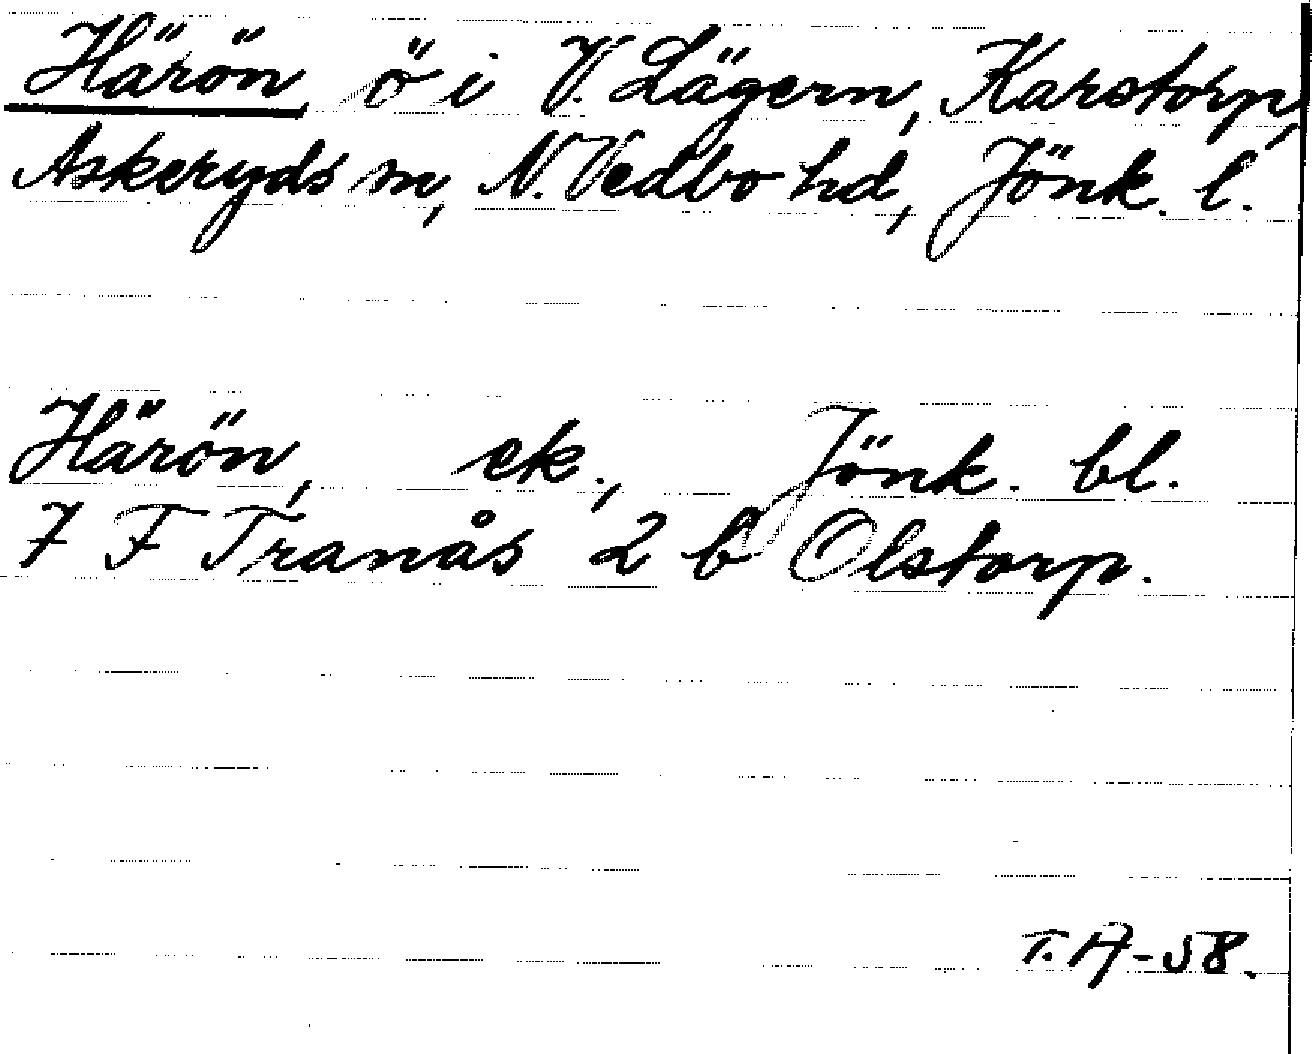 Härön ö i V. Lägern, Karstorp,
Askeryds sn, N. Vedbo hd, Jönk. l.
Härön, ek., Jönk. bl.
7 F Tranås 2 b Olstorp.
T. A-58.